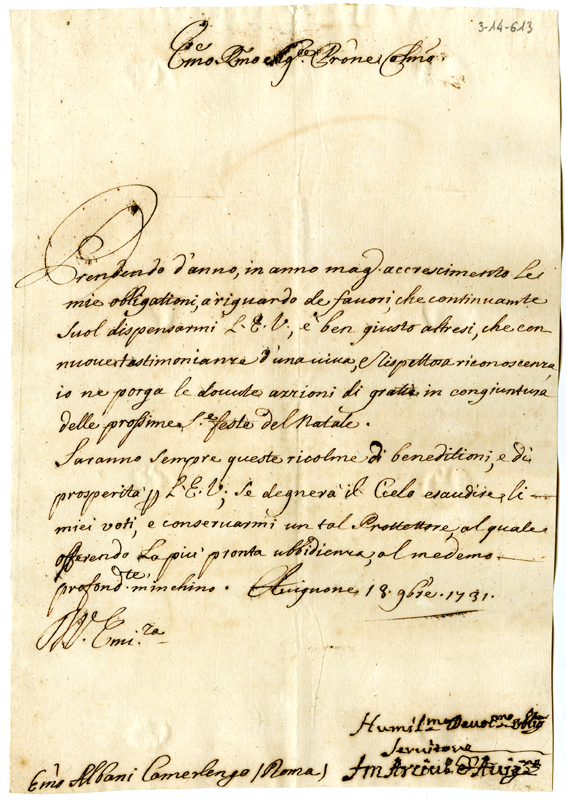 3-14-613
Emo Rmo Sigre Prõne Colmo
Prendendo d'anno, in anno magr accrescimento le
mie obligationi, a riguardo de favori, che continuamte
suol dispensarmi L. E. V., è ben giusto altresi, che con
nuove testimonianze d'una viva, e rispettosa riconoscenza
io ne porga le dovute azzioni di gratie in congiuntura
delle prossime Ste feste del Natale.
Saranno sempre queste ricolme di beneditioni, e di
prosperità p L. E. V., se degnerà il Cielo esaudire li
miei voti, e conservarmi un tal Protettore, al quale
offerendo la piu' pronta ubbidienza, al medemo
profondte minchino. Avignone 18. 9bre. 1731.
Di V. Emi.za
Humilmo Devotmo
Servitore
Emo Albani Camerlengo (Roma)